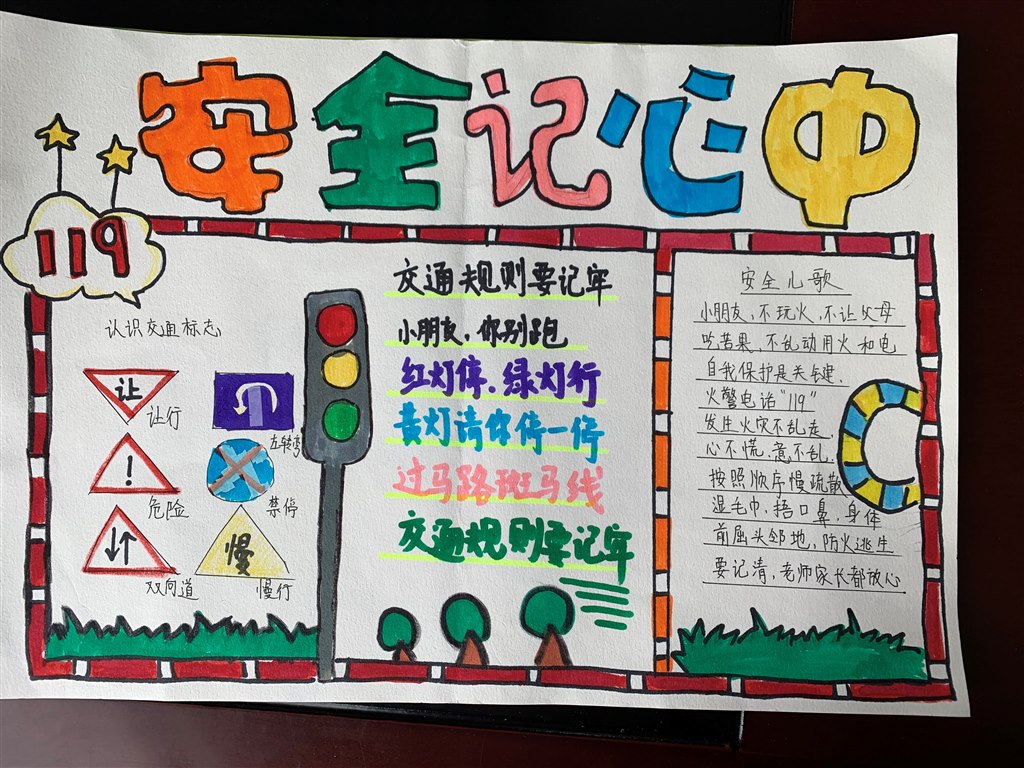 安全记心中
119
认识交通标志
让
让行
左转弯
!
危险
禁停
双向道
慢
慢行
交通规则要记牢
小朋友,你别跑
红灯停,绿灯行
黄灯请你停一停
过马路斑马线
交通规则要记牢
安全儿歌
小朋友,不玩火,不让父母
吃苦果,不乱动用火和电
自我保护是关键,
火警电话“119”
发生火灾不乱走,
心不慌,意不乱,
按照顺序慢疏散
湿毛巾,捂口鼻,身体
前屈头邻地,防火逃生
要记清,老师家长都放心